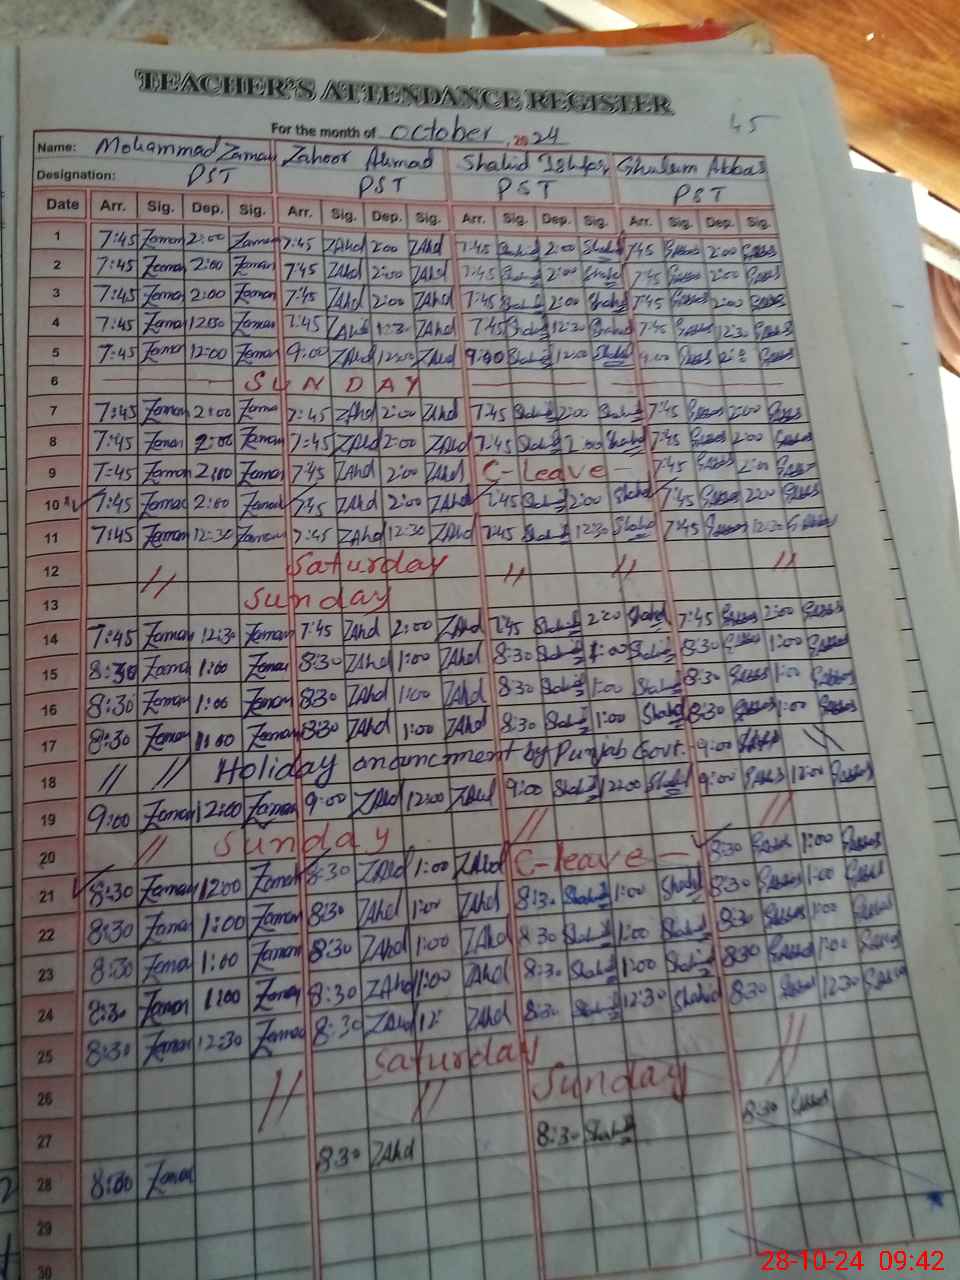 TEACHER'S ATTENDANCE REGISTER
45
For the month of October, 2024
Name: Mohammad Zaman Zahoor Ahmad Shahid Ishfaq Ghulam Abbas
Designation: PST PST PST PST
Date Arr. Sig. Dep. Sig. Arr. Sig. Dep. Sig. Arr. Sig. Dep. Sig. Arr. Sig. Dep. Sig.
1 7:45 Zaman 2:00 Zaman 7:45 ZAhd 2:00 ZAhd 7:45 Shahid 2:00 Shahid 7:45 2:00
2 7:45 Zaman 2:00 Zaman 7:45 ZAhd 2:00 ZAhd 7:45 Shahid 2:00 Shahid 7:45 2:00
3 7:45 Zaman 2:00 Zaman 7:45 ZAhd 2:00 ZAhd 7:45 Shahid 2:00 Shahid 7:45 2:00
4 7:45 Zaman 12:30 Zaman 7:45 ZAhd 12:30 ZAhd 7:45 Shahid 12:30 Shahid 7:45 12:30
5 7:45 Zaman 12:00 Zaman 9:00 ZAhd 12:00 ZAhd 9:00 Shahid 12:00 Shahid 9:00
6 SUNDAY
7 7:45 Zaman 2:00 Zaman 7:45 ZAhd 2:00 ZAhd 7:45 Shahid 2:00 Shahid 7:45 2:00
8 7:45 Zaman 2:00 Zaman 7:45 ZAhd 2:00 ZAhd 7:45 Shahid 2:00 Shahid 7:45 2:00
9 7:45 Zaman 2:00 Zaman 7:45 ZAhd 2:00 ZAhd C-leave 7:45 2:00
10 7:45 Zaman 2:00 Zaman 7:45 ZAhd 2:00 ZAhd 7:45 Shahid 2:00 Shahid 7:45 2:00
11 7:45 Zaman 12:30 Zaman 7:45 ZAhd 12:30 ZAhd 7:45 Shahid 12:30 Shahid 7:45 12:30
12 // Saturday // // //
13 Sunday
14 7:45 Zaman 12:30 Zaman 7:45 ZAhd 2:00 ZAhd 7:45 Shahid 2:00 Shahid 7:45 2:00
15 8:30 Zaman 1:00 Zaman 8:30 ZAhd 1:00 ZAhd 8:30 Shahid 1:00 Shahid 8:30 1:00
16 8:30 Zaman 1:00 Zaman 8:30 ZAhd 1:00 ZAhd 8:30 Shahid 1:00 Shahid 8:30 1:00
17 8:30 Zaman 1:00 Zaman 8:30 ZAhd 1:00 ZAhd 8:30 Shahid 1:00 Shahid 8:30 1:00
18 // // Holiday anouncment by Punjab Govt. 9:00
19 9:00 Zaman 12:00 Zaman 9:00 ZAhd 12:00 ZAhd 9:00 Shahid 12:00 Shahid 9:00 12:00
20 // Sunday // //
21 8:30 Zaman 12:00 Zaman 8:30 ZAhd 1:00 ZAhd C-leave 8:30 1:00
22 8:30 Zaman 1:00 Zaman 8:30 ZAhd 1:00 ZAhd 8:30 Shahid 1:00 Shahid 8:30 1:00
23 8:30 Zaman 1:00 Zaman 8:30 ZAhd 1:00 ZAhd 8:30 Shahid 1:00 Shahid 8:30 1:00
24 8:30 Zaman 1:00 Zaman 8:30 ZAhd 1:00 ZAhd 8:30 Shahid 1:00 Shahid 8:30 1:00
25 8:30 Zaman 12:30 Zaman 8:30 ZAhd 12: ZAhd 8:30 Shahid 12:30 Shahid 8:30 12:30
26 // Saturday // //
27 Sunday
28 8:00 Zaman 8:30 ZAhd 8:30 Shahid 8:30
29
30
28-10-24 09:42